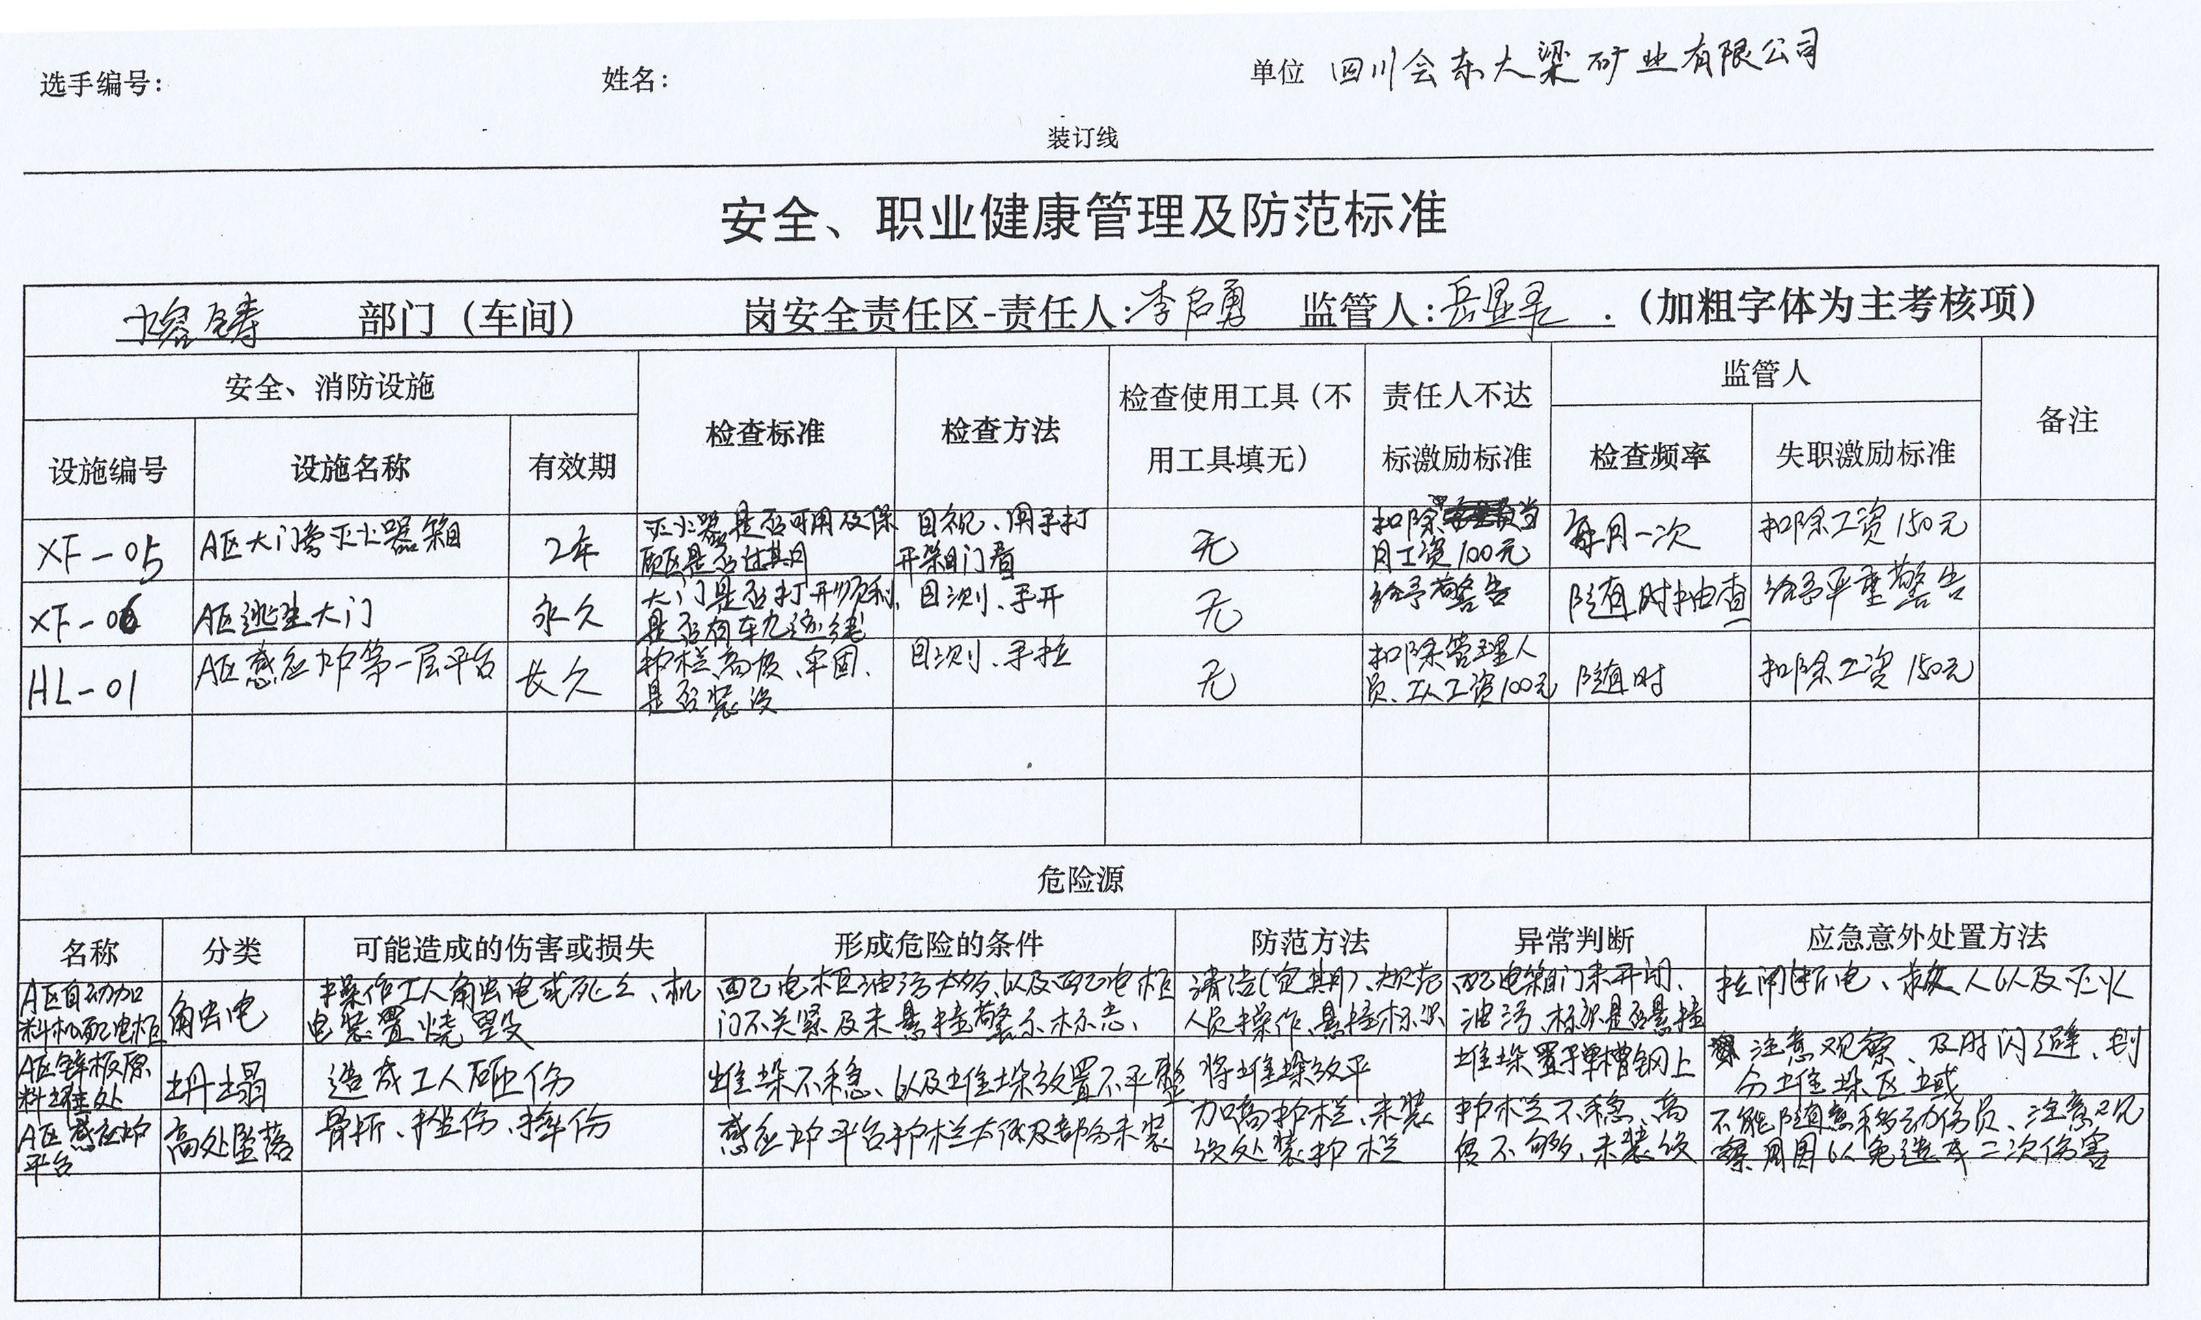 选手编号： 姓名： 单位 四川会东大梁矿业有限公司
装订线
安全、职业健康管理及防范标准
熔铸 部门（车间） 岗安全责任区-责任人：李启勇 监管人：岳显 .（加粗字体为主考核项）
安全、消防设施 检查标准 检查方法 检查使用工具（不用工具填无） 责任人不达标激励标准 监管人 备注
设施编号 设施名称 有效期 检查频率 失职激励标准
XF-05 A区大门旁灭火器箱 2年 灭火器是否可用及保质区是否过其月 目视、用手打开箱门看 无 扣除当月工资100元 每月一次 扣除工资150元
XF-06 A区逃生大门 永久 大门是否打开顺利、是否有车九 目测、手开 无 给予警告 随时抽查 给予严重警告
HL-01 A区感应炉第一层平台 长久 护栏高度、牢固、是否装设 目测、手拉 无 扣除管理人员、工人工资100元 随时 扣除工资150元
危险源
名称 分类 可能造成的伤害或损失 形成危险的条件 防范方法 异常判断 应急意外处置方法
A区自动加料机配电柜 触电 操作工人触电或死亡、机电装置烧毁 配电柜油污太多、以及配电柜门不关紧及未悬挂警示标志、 清洁（定期）、规范人员操作、悬挂标识 配电箱门未开闭、油污、标识是否悬挂 拉闸断电、救人以及灭火
A区锌板原料堆处 坍塌 造成工人砸伤 堆垛不稳、以及堆垛放置不平整 将堆垛放平 堆垛置于单槽钢上 注意观察、及时闪避、划分堆垛区域
A区感应炉平台 高处坠落 骨折、挫伤、摔伤 感应炉平台护栏太低及部分未装 加高护栏、未装设处装护栏 护栏不稳、高度不够、未装设 不能随意移动伤员、注意观察周围以免造成二次伤害